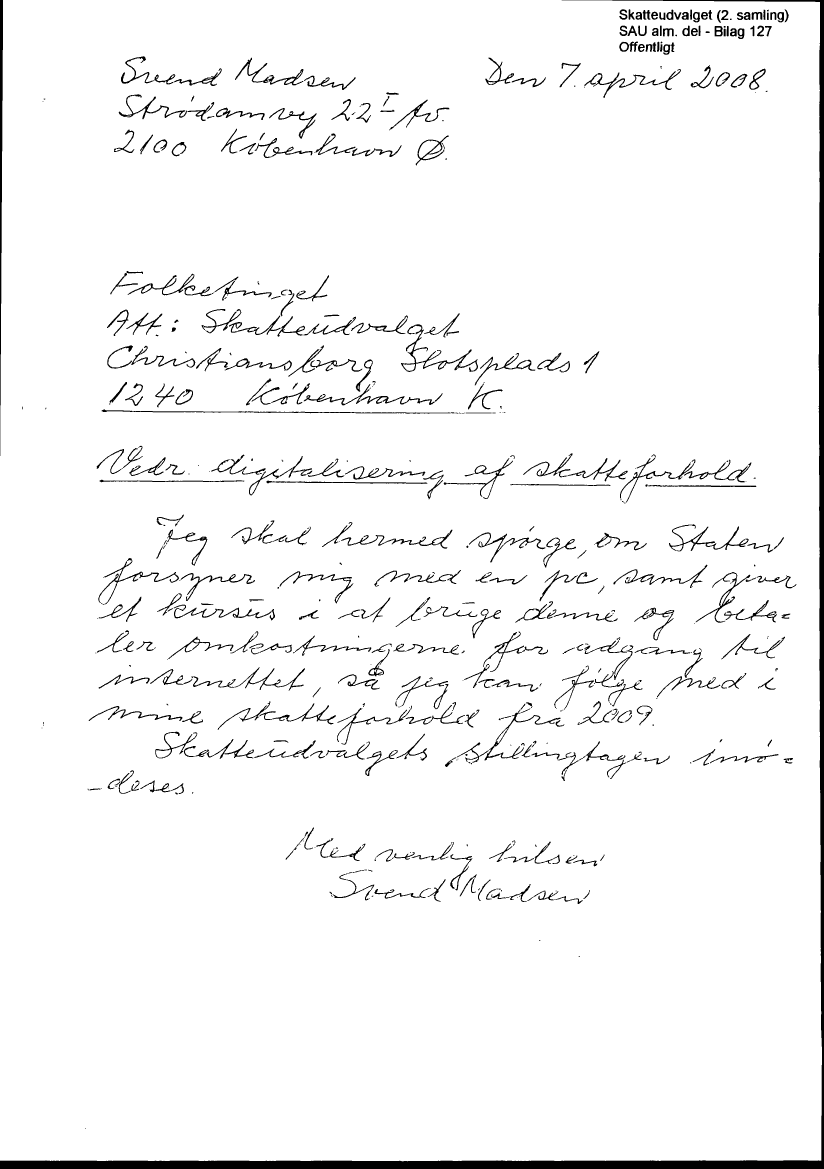 Skatteudvalget (2. samling)
SAU alm. del - Bilag 127
Offentligt
Svend Madsen
Den 7. april 2008.
Strødamvej 22 I tv.
2100 København Ø.
Folketinget
Att.: Skatteudvalget
Christiansborg Slotsplads 1
1240 København K.
Vedr. digitalisering af skatteforhold.
Jeg skal hermed spørge, om Staten
forsyner mig med en pc, samt giver
et kursus i at bruge denne og beta=
ler omkostningerne for adgang til
internettet, så jeg kan følge med i
mine skatteforhold fra 2009.
Skatteudvalgets stillingtagen imø=
-deses.
Med venlig hilsen
Svend Madsen